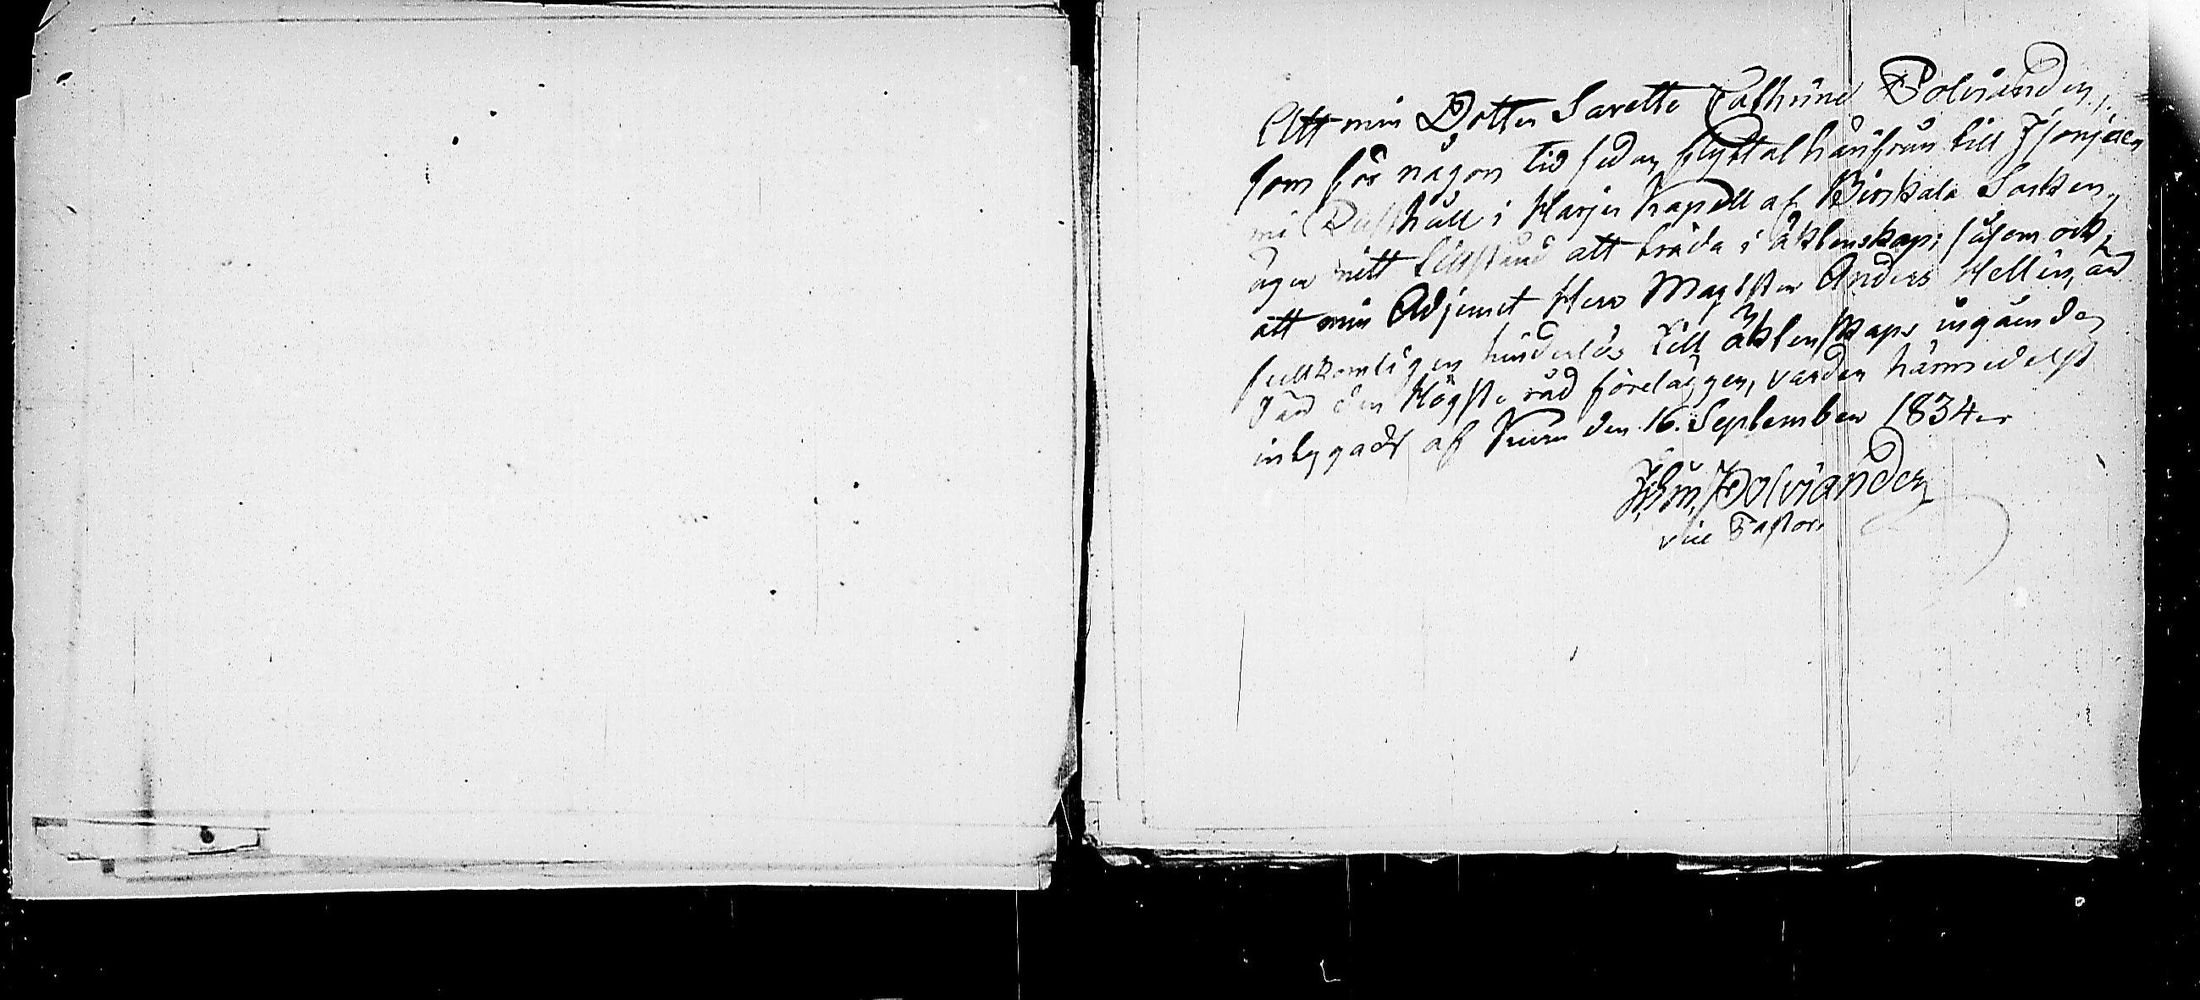 Att min Dotter Sarette Cathrine Polviander,
som för någon tid sedan flyttat härifrån till Isonjeen
mi Rusthåll i Harju Kapell af Birkala Socken,
äger mitt tillstånd att träda i äktenskap; såsom ock,
att min Adjunct Herr Magister Anders Hellin, är
fullkomligen hinderlös till äktenskaps ingående,
den Högste råd förelägger, varder härmedelst
intygadt af Kuru den 16. September 1834.
Polviander
vice Pastor